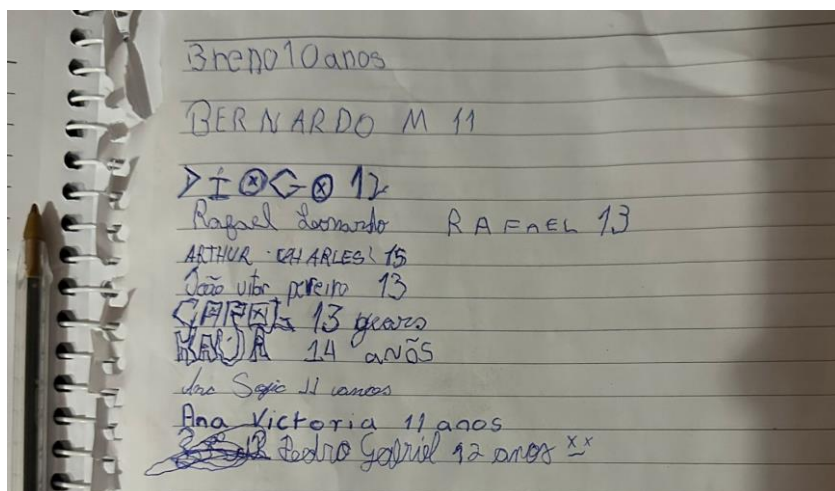 Breno 10 anos
BERNARDO M 11
DIOGO 12
Rafael Leonardo RAFAEL 13
ARTHUR CHARLES 15
João vitor pereira 13
13 years
14 anõs
Ana 11 anos
Ana Victoria 11 anos
Pedro Gabriel 12 anos xx